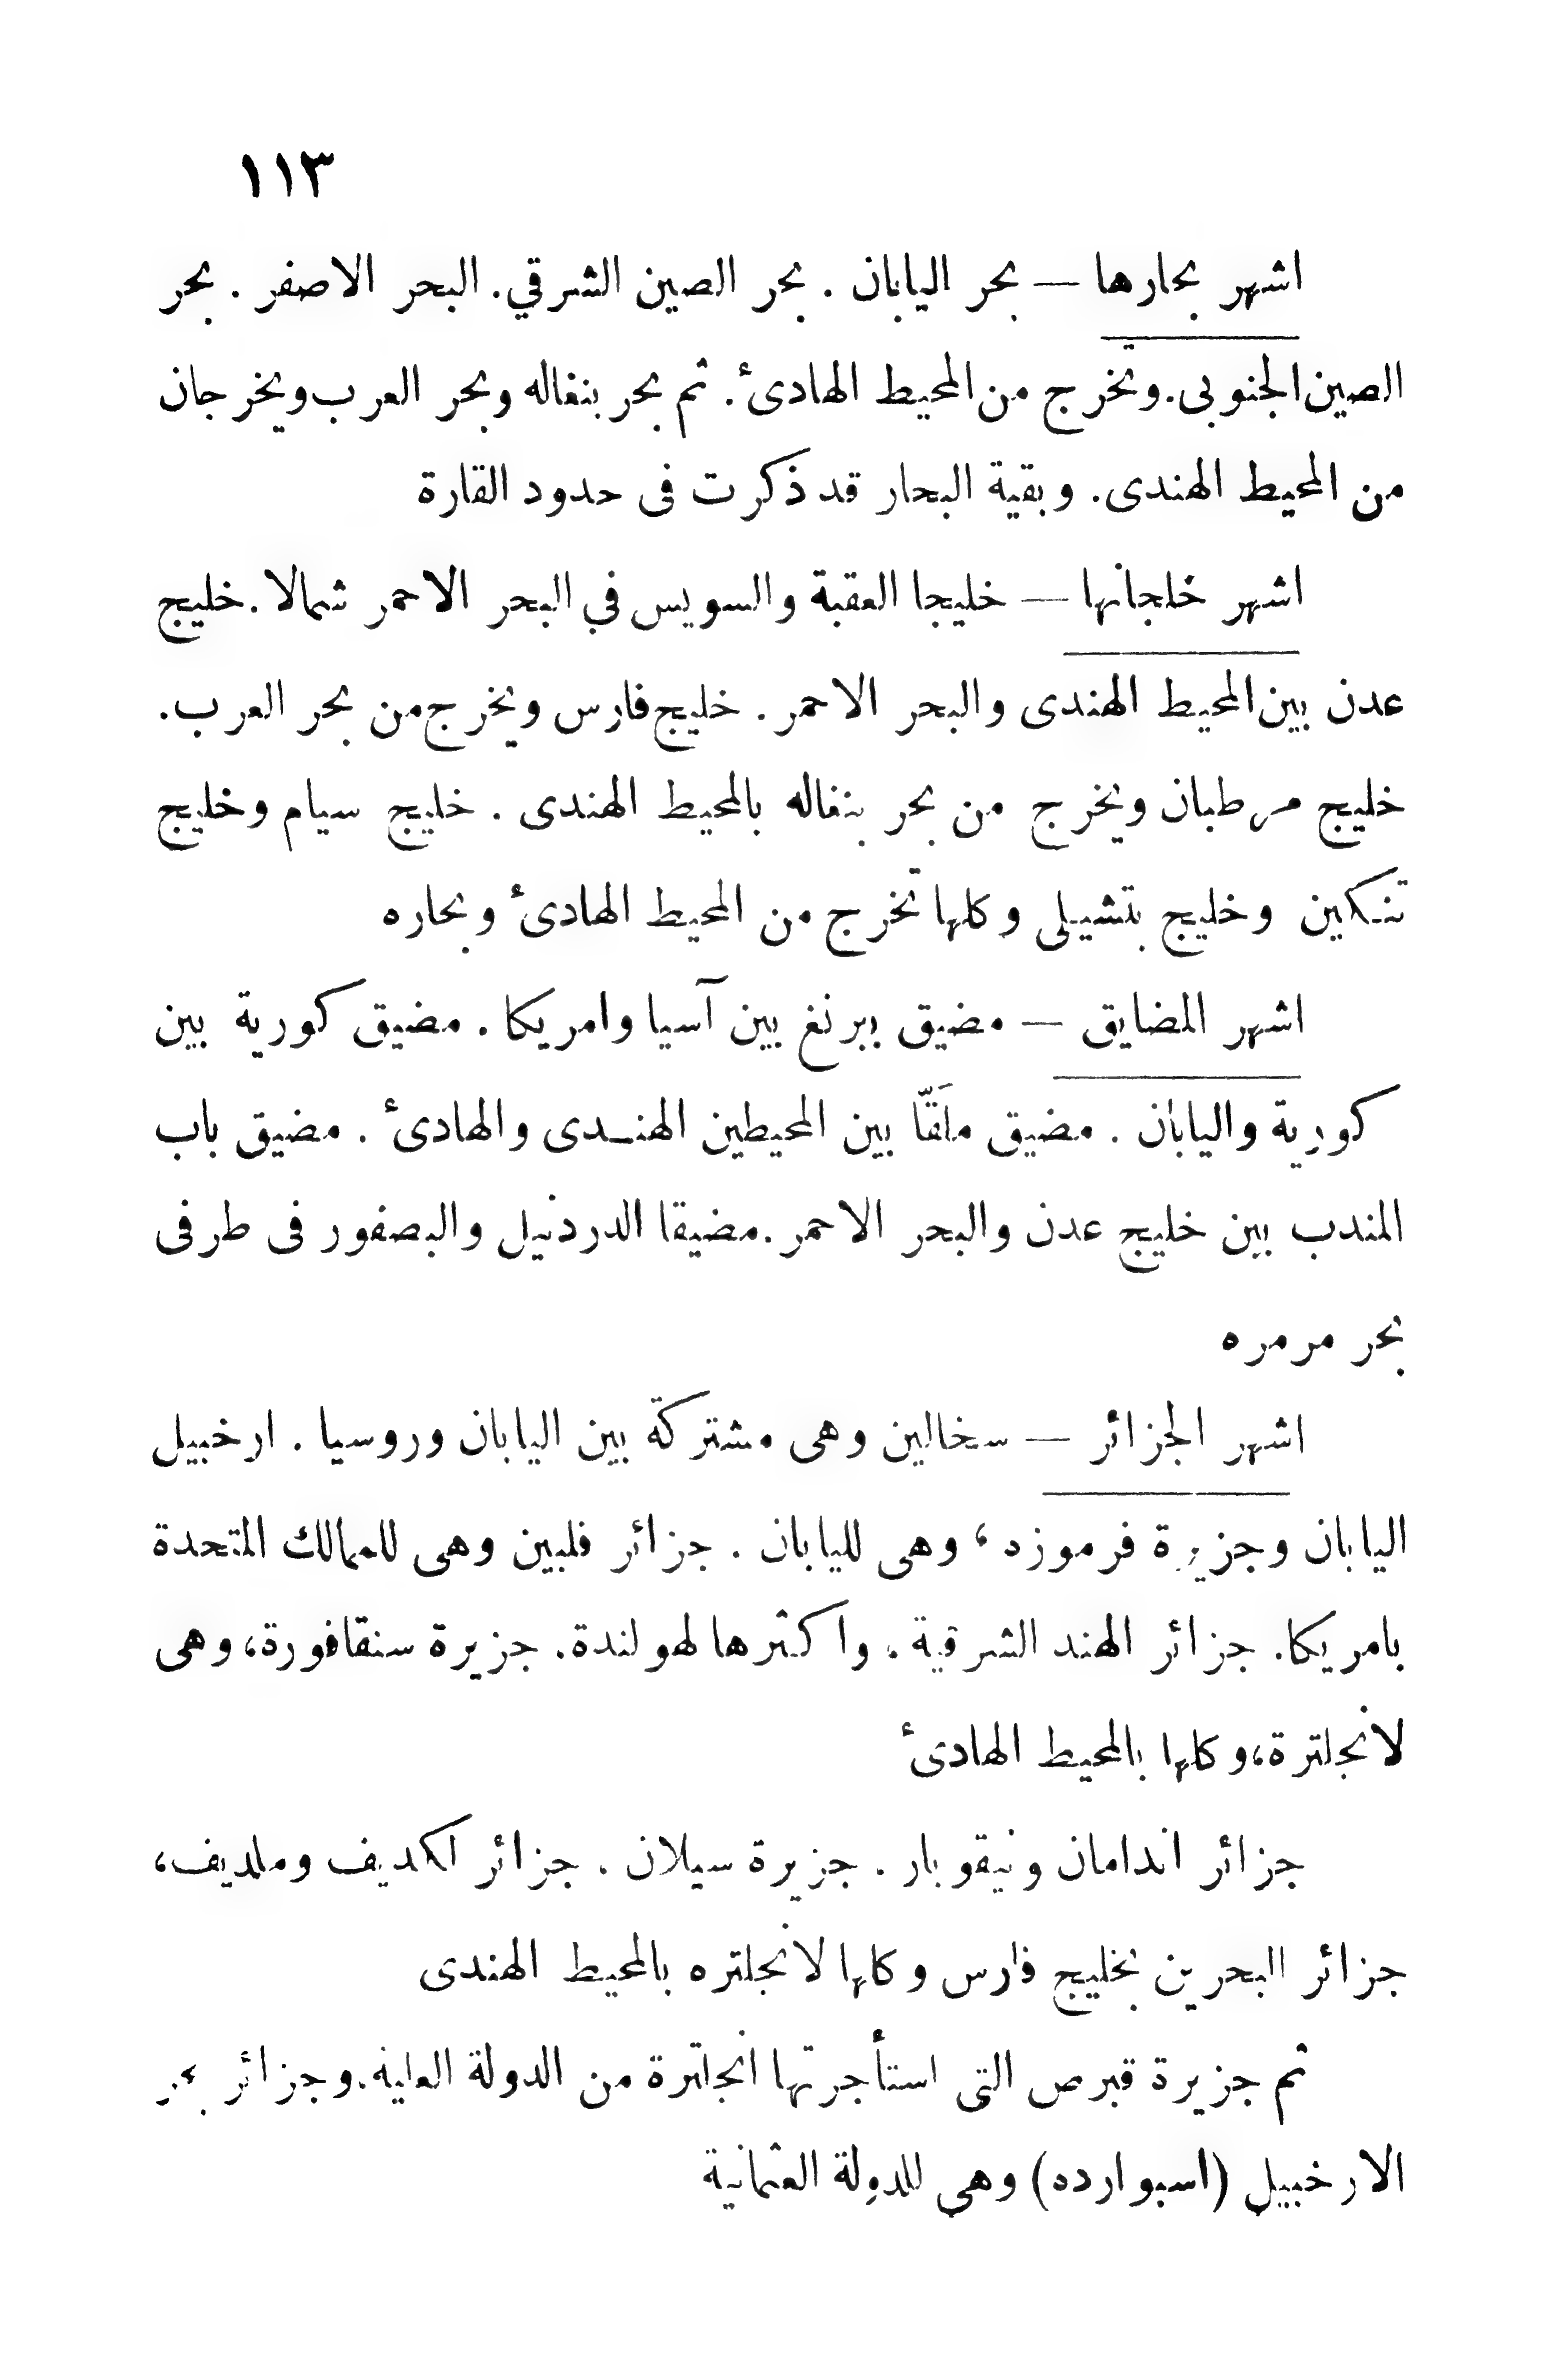 ١١٣
اشهر بحارها — بحر اليابان . بحر الصين الشرقي. البحر الاصفر . بحر
الصين الجنوبى. وتخرج من المحيط الهادئ. ثم بحر بنغاله وبحر العرب ويخرجان
من المحيط الهندى. وبقية البحار قد ذكرت فى حدود القارة
اشهر خلجانها — خليجا العقبة والسويس في البحر الاحمر شمالا. خليج
عدن بين المحيط الهندى والبحر الاحمر . خليج فارس ويخرج من بحر العرب.
خليج مرطبان ويخرج من بحر بنغاله بالمحيط الهندى . خليج سيام وخليج
تنكين وخليج بتشيلى وكلها تخرج من المحيط الهادئ وبحاره
اشهر المضايق — مضيق ببرنغ بين آسيا وامريكا . مضيق كورية بين
كورية واليابان . مضيق ملَقّا بين المحيطين الهندى والهادئ . مضيق باب
المندب بين خليج عدن والبحر الاحمر . مضيقا الدردنيل والبصفور فى طرفى
بحر مرمره
اشهر الجزائر — سخالين وهى مشتركة بين اليابان وروسيا . ارخبيل
اليابان وجزيرة فرموزد ، وهى لليابان . جزائر فلبين وهى للممالك المتحدة
بامريكا. جزائر الهند الشرقية . واكثرها لهولندة. جزيرة سنقافورة، وهى
لانجلترة، وكلها بالمحيط الهادئ
جزائر اندامان ونيقوبار . جزيرة سيلان . جزائر لكديف وملديف،
جزائر البحرين بخليج فارس وكلها لانجلتره بالمحيط الهندى
ثم جزيرة قبرص التى استأجرتها انجلترة من الدولة العلية. وجزائر بحر
الارخبيل (اسبوارده) وهي للدولة العثمانية